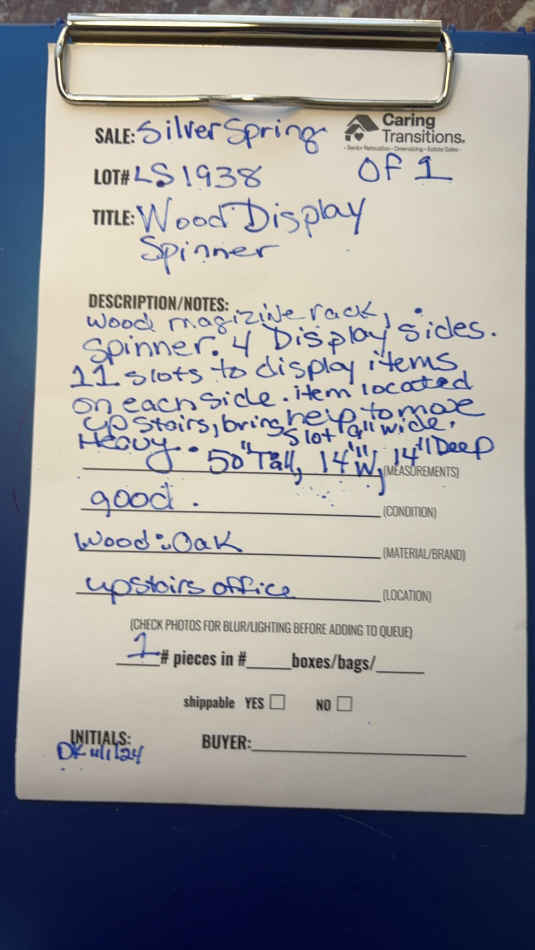 Caring
Transitions.
- Senior Relocation - Downsizing - Estate Sales -
SALE: Silver Spring
LOT# LS1938 Of 1
TITLE: Wood Display
Spinner
DESCRIPTION/NOTES:
wood magizine rack,
Spinner. 4 Display sides.
11 slots to display items
on each side. item located
upstairs, bring help to move
Heavy. Slot 9" wide.
50" Tall, 14" W, 14" Deep
(MEASUREMENTS)
good. (CONDITION)
Wood: Oak (MATERIAL/BRAND)
upstairs office (LOCATION)
(CHECK PHOTOS FOR BLUR/LIGHTING BEFORE ADDING TO QUEUE)
1 # pieces in #_____boxes/bags/_____
shippable YES ☐ NO ☐
INITIALS: BUYER:
DK 11/1/24